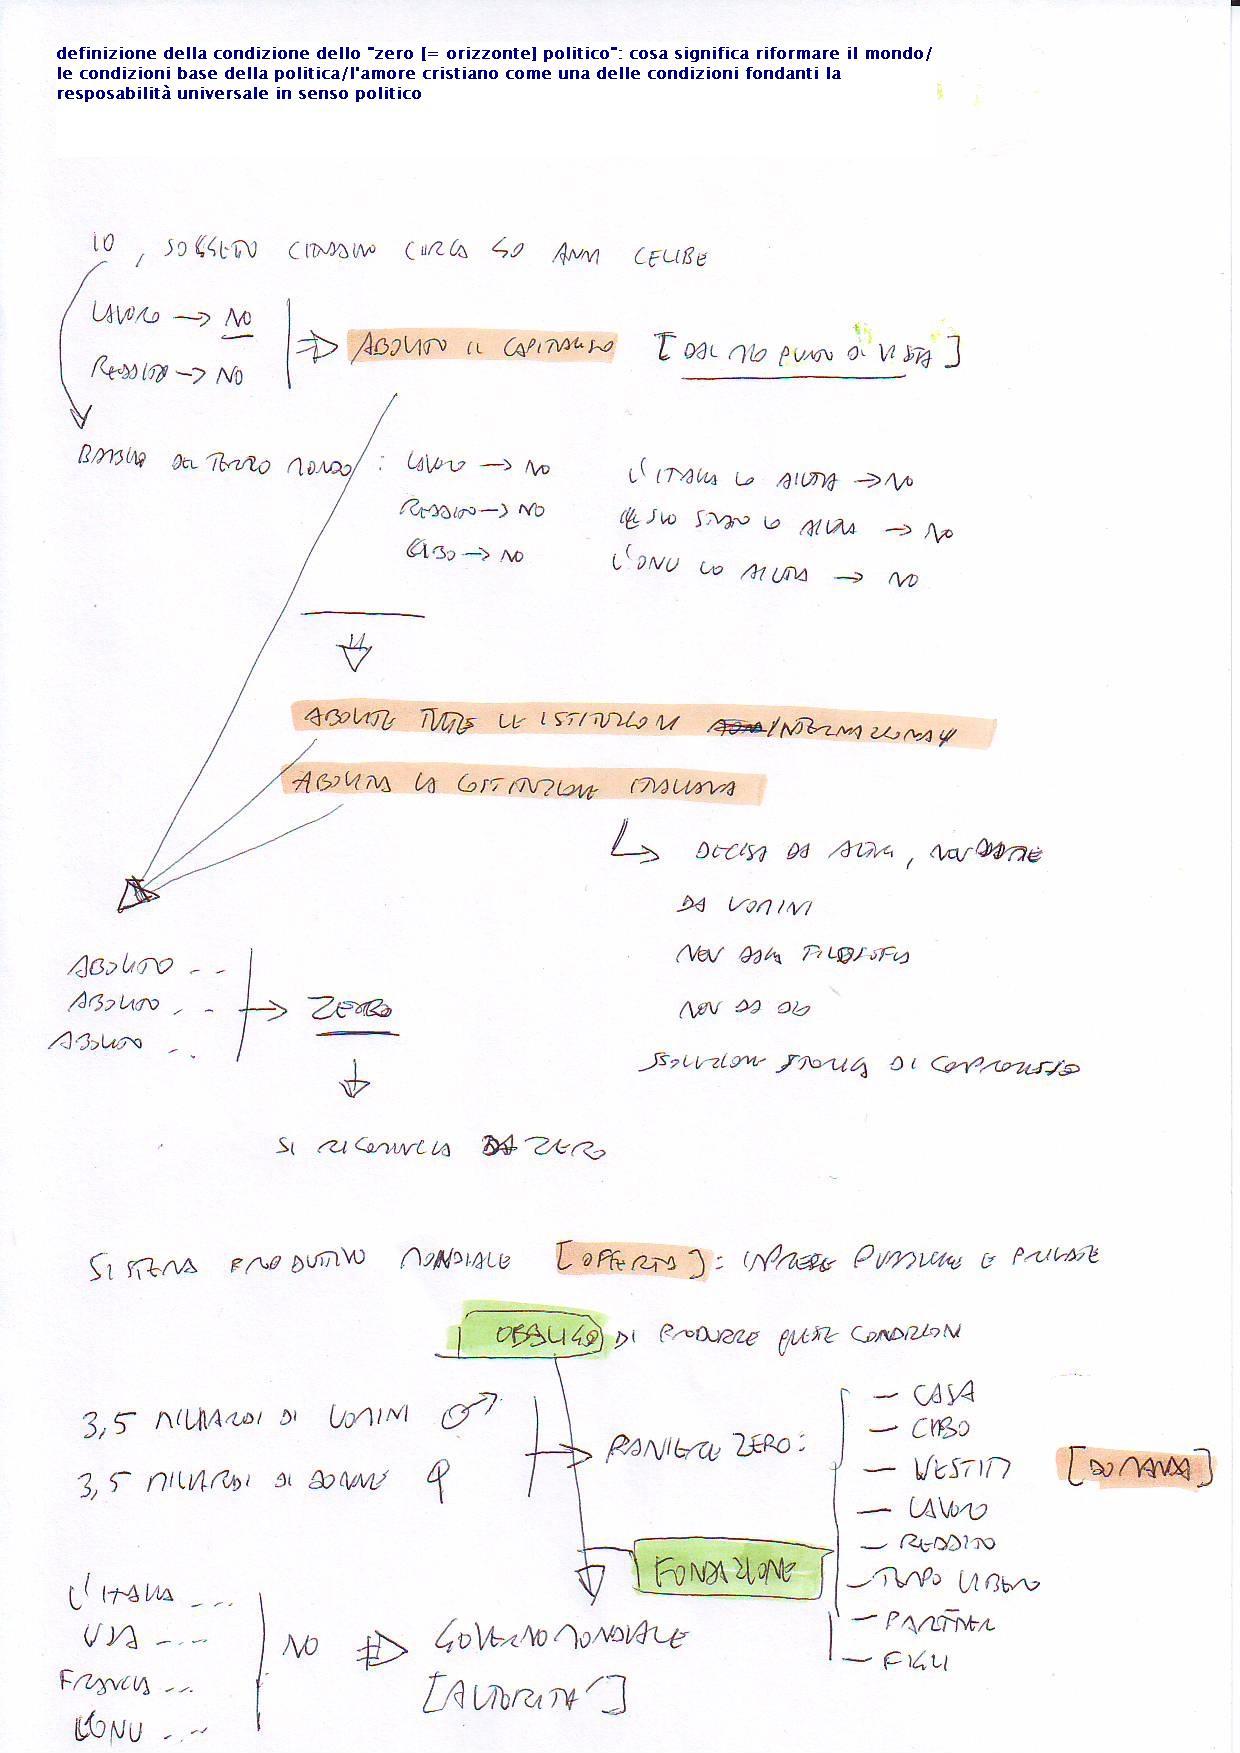 definizione della condizione dello "zero [= orizzonte] politico": cosa significa riformare il mondo/
le condizioni base della politica/l'amore cristiano come una delle condizioni fondanti la
resposabilità universale in senso politico
IO, SOGGETTO CITTADINO CIRCA 40 ANNI CELIBE
LAVORO → NO
REDDITO → NO
ABOLITO IL CAPITALISMO [DAL MIO PUNTO DI VISTA]
BAMBINO DEL TERZO MONDO: LAVORO → NO L'ITALIA LO AIUTA → NO
REDDITO → NO SUO STATO LO AIUTA → NO
CIBO → NO L'ONU LO AIUTA → NO
ABOLITE TUTTE LE ISTITUZIONI INTERNAZIONALI
ABOLITA LA COSTITUZIONE ITALIANA
DECISA DA ALTRI, NON
DA UOMINI
NON DALLA FILOSOFIA
NON DA DIO
SOLUZIONE STORICA DI COMPROMESSO
ABOLITO ..
ABOLITO ..
ABOLITO ..
→ ZERO
SI RICOMINCIA DA ZERO
SISTEMA PRODUTTIVO MONDIALE [OFFERTA]: IMPRESE PUBBLICHE E PRIVATE
OBBLIGO DI PRODURRE QUESTE CONDIZIONI
3,5 MILIARDI DI UOMINI ♂
3,5 MILIARDI DI DONNE ♀
→ ZERO:
— CASA
— CIBO
— VESTITI
— LAVORO
— REDDITO
— TEMPO LIBERO
— PARTNER
— FIGLI
[DOMANDA]
FONDAZIONE
L'ITALIA ...
USA ...
FRANCIA ...
L'ONU ...
NO ⇒ GOVERNO MONDIALE
[AUTORITA']